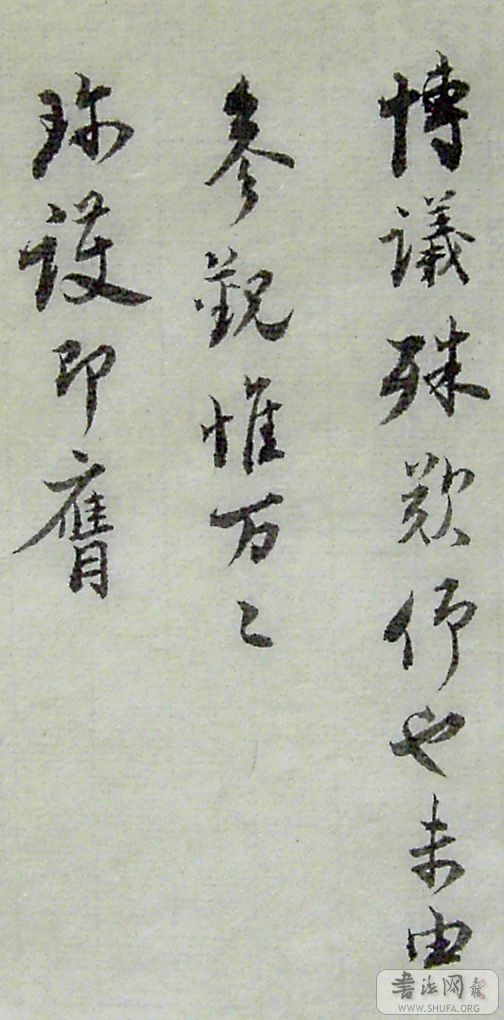 博議殊歎仰也未由
參觀惟万〻
珎護即膺
书法网
WWW.SHUFA.ORG